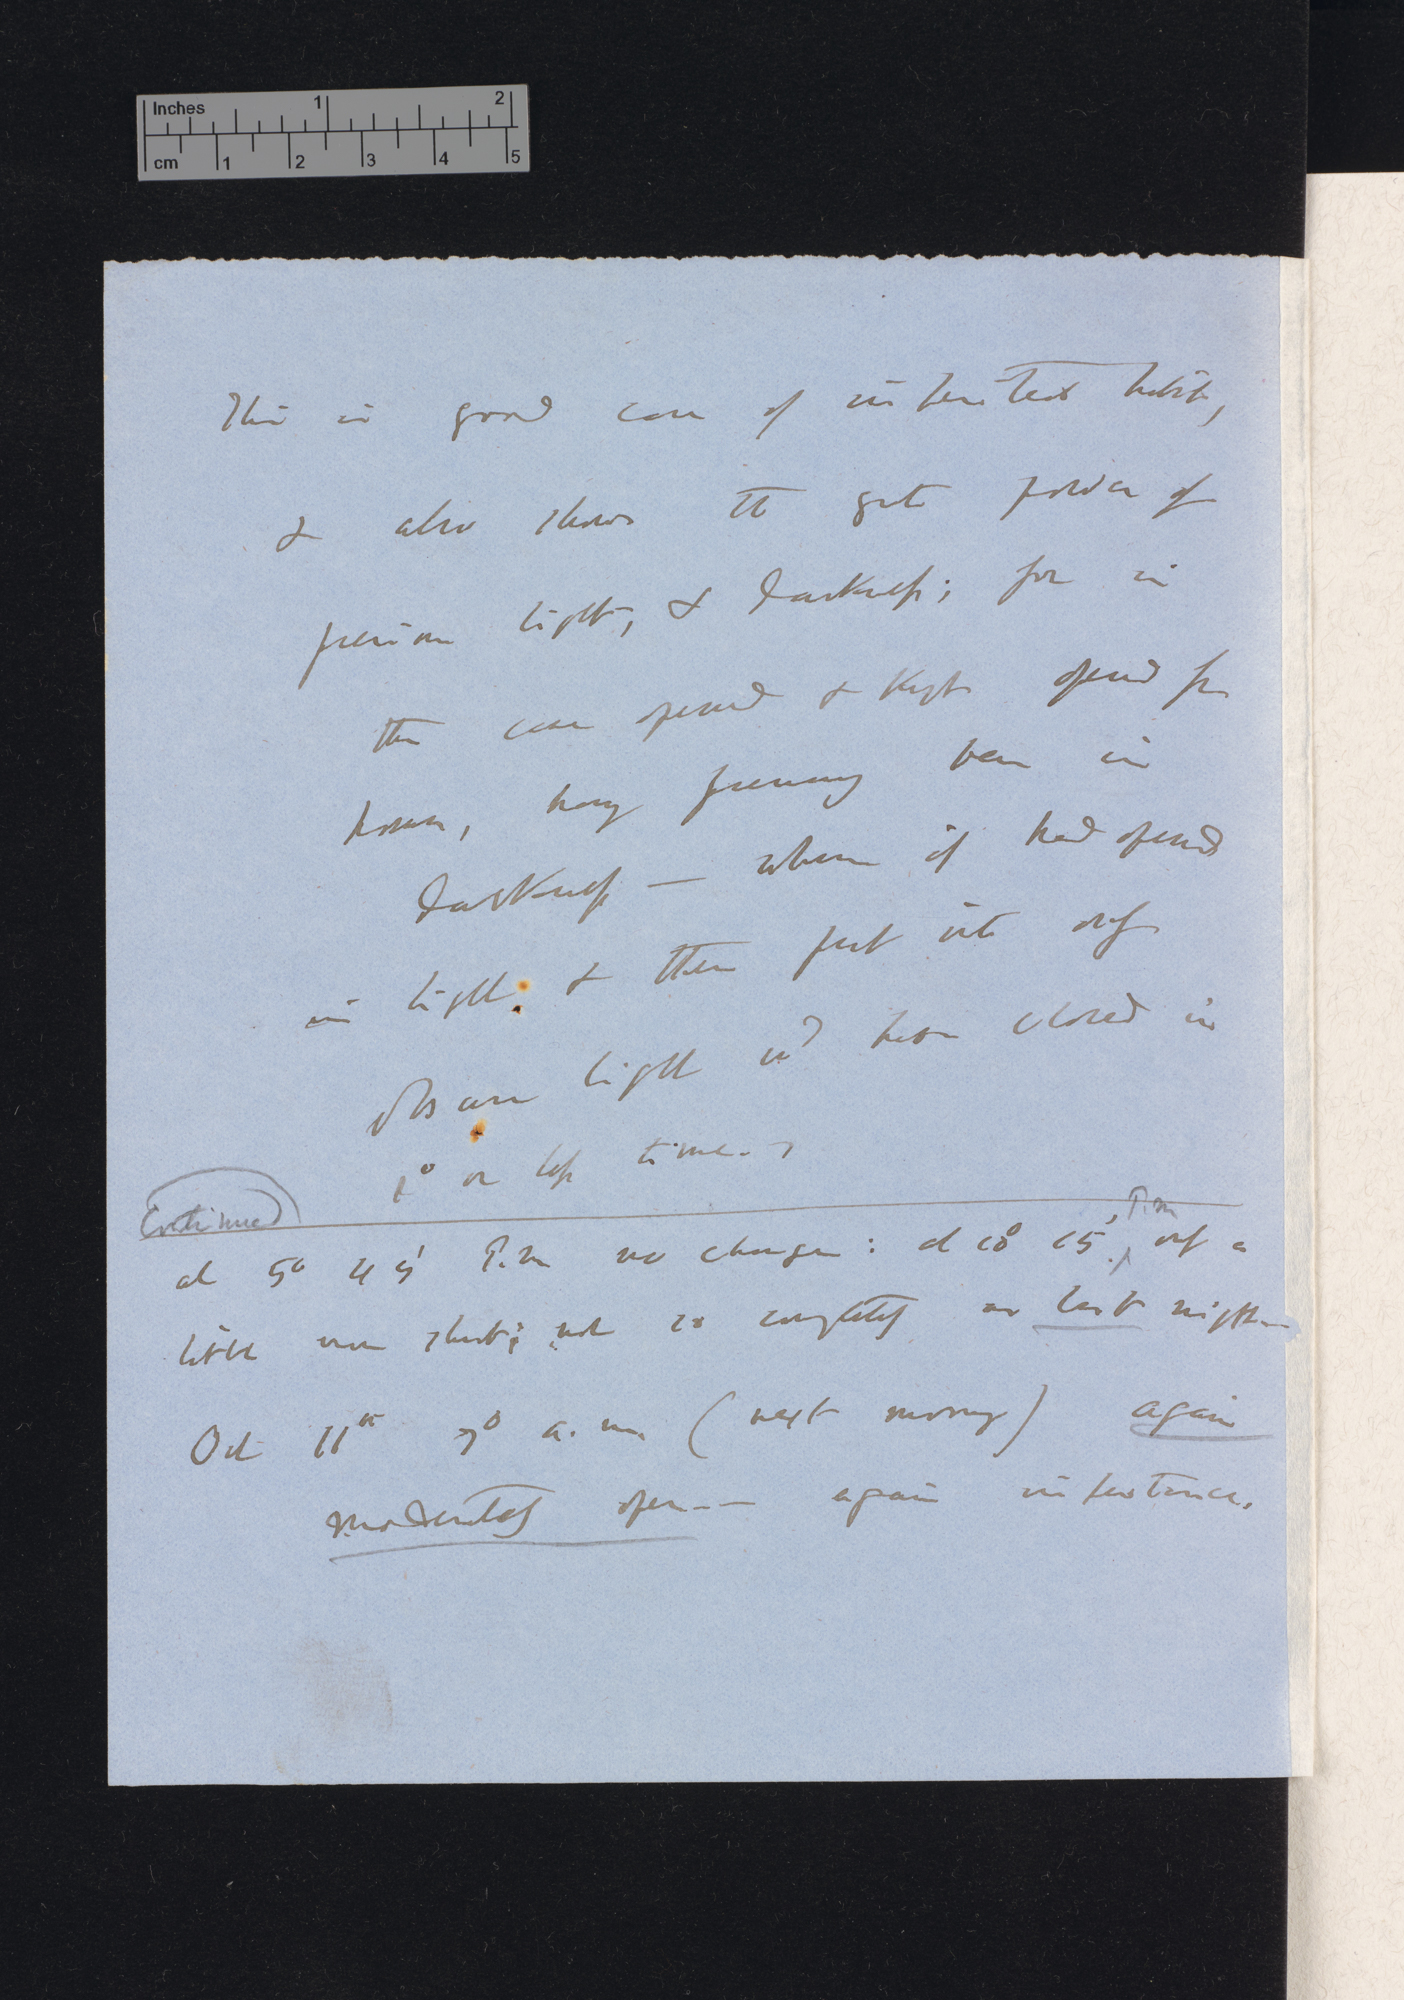 Inches 1 2
cm 1 2 3 4 5
This is good case of imperfect habit,
& also shows the great power of
previous light, & darkness; for in
this case opened & kept opened for
hours, having previously been in
darkness — where if had opened
in light & then put into
obscure light wd have closed in
1° or less time.
Continued
at 5° 45' P.m no change: at 10° 15' P.m only a
little more shut; not so completely as last night
Oct 11th 7° a.m. (next morning) again
moderately open — again